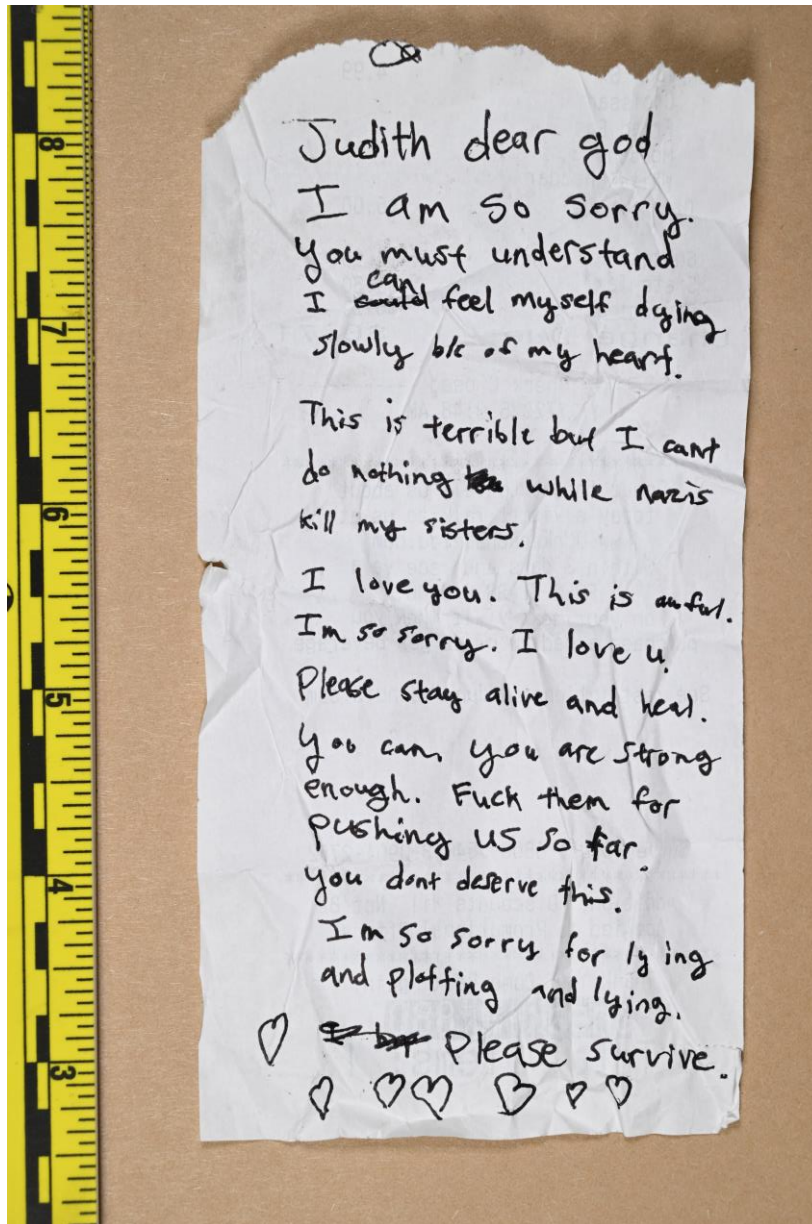 Judith dear god
I am so sorry.
You must understand
I can feel myself dying
slowly b/c of my heart.
This is terrible but I cant
do nothing while nazis
kill my sisters.
I love you. This is awful.
Im so sorry. I love u.
Please stay alive and heal.
You can, you are strong
enough. Fuck them for
pushing us so far.
you dont deserve this.
Im so sorry for lying
and plotting and lying.
Please survive.
8
7
6
5
4
3